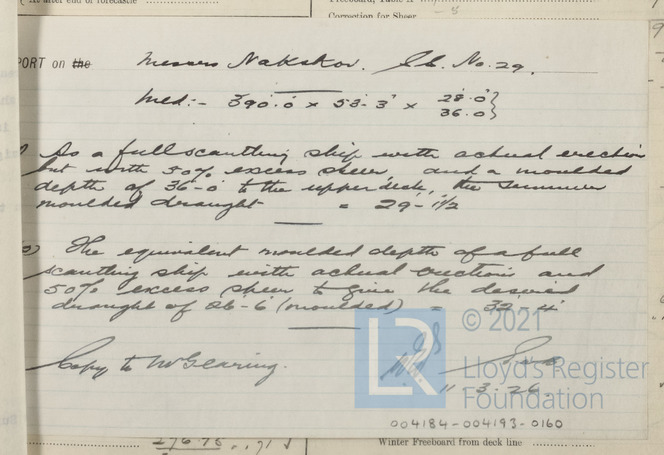 At after end of forecastle
Correction for Sheer - 5
PORT on the Messrs Nakskov. Sh. No. 29.
Mld:- 390.0 x 53.3 x 28.0
36.0
As a full scantling ship with actual erection
but with 50% excess sheer, and a moulded
depth of 36-0 to the upper deck, the summer
moulded draught = 29-1½
2) The equivalent moulded depth of a full
scantling ship with actual erections and
50% excess sheer to give the desired
draught of 26-6 (moulded) = 32-4"
Copy to Mr Gearing.
11.3.26.
© 2021
LR
Lloyd's Register
Foundation
004184-004193-0160
276.75
Winter Freeboard from deck line